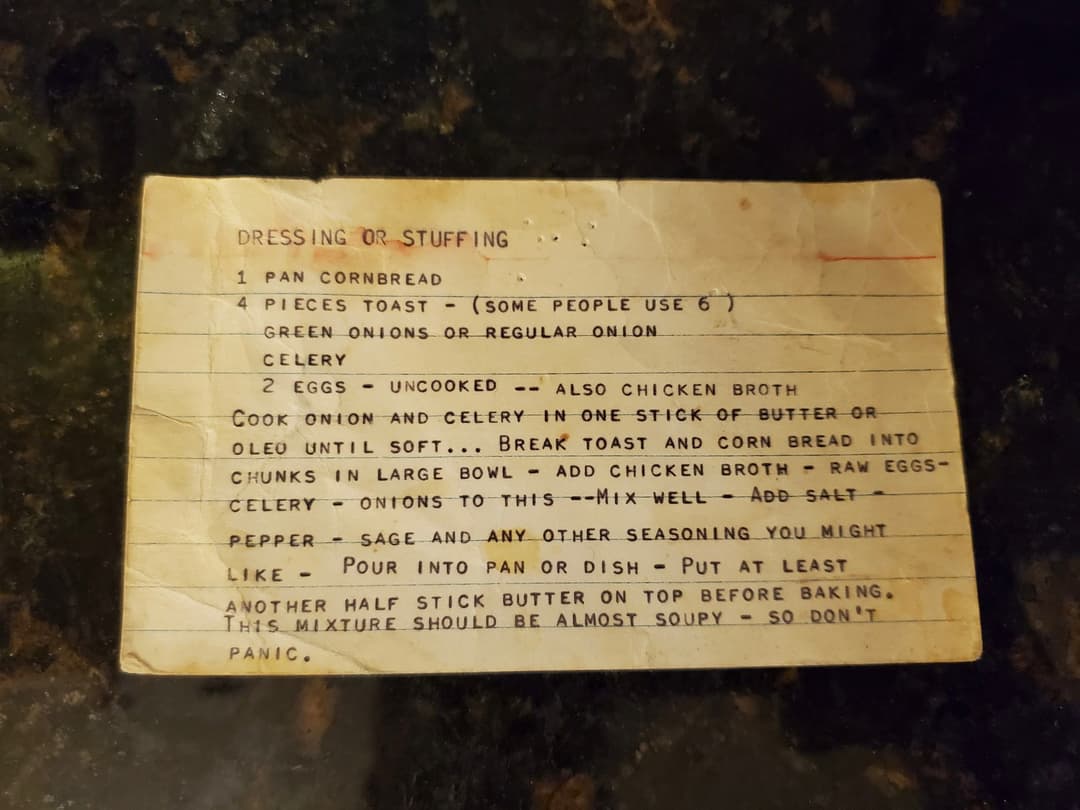 DRESSING OR STUFFING
1 PAN CORNBREAD
4 PIECES TOAST - (SOME PEOPLE USE 6 )
GREEN ONIONS OR REGULAR ONION
CELERY
2 EGGS - UNCOOKED -- ALSO CHICKEN BROTH
COOK ONION AND CELERY IN ONE STICK OF BUTTER OR
OLEO UNTIL SOFT... BREAK TOAST AND CORN BREAD INTO
CHUNKS IN LARGE BOWL - ADD CHICKEN BROTH - RAW EGGS-
CELERY - ONIONS TO THIS --MIX WELL - ADD SALT -
PEPPER - SAGE AND ANY OTHER SEASONING YOU MIGHT
LIKE - POUR INTO PAN OR DISH - PUT AT LEAST
ANOTHER HALF STICK BUTTER ON TOP BEFORE BAKING.
THIS MIXTURE SHOULD BE ALMOST SOUPY - SO DON'T
PANIC.